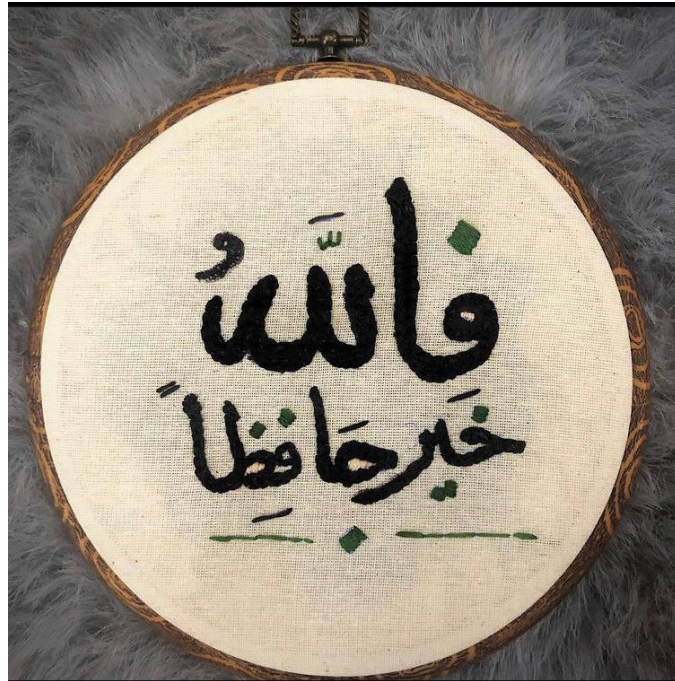 فاللَّهُ
خَير حَافِظاً